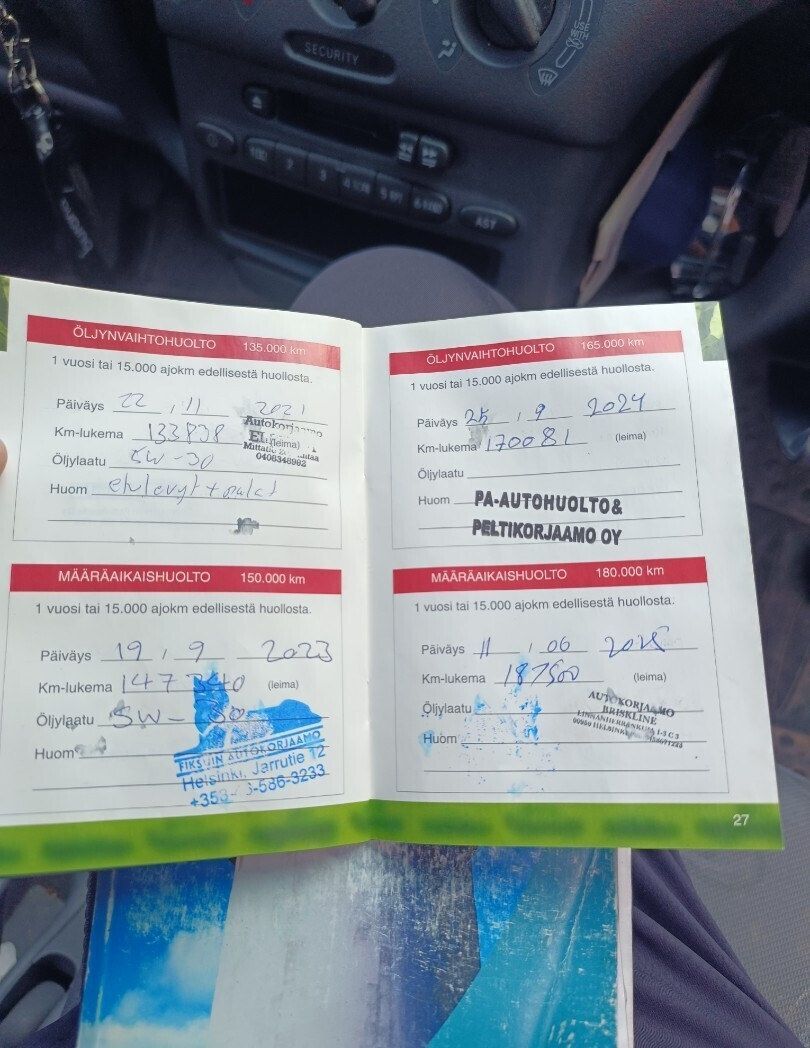 SECURITY
USE
WITH
2
3
AST
ÖLJYNVAIHTOHUOLTO 135.000 km
1 vuosi tai 15.000 ajokm edellisestä huollosta.
Päiväys 22 , 11 2021
Km-lukema 133838 (leima)
Autokorjaamo
0408348982
Öljylaatu 5W-30
Huom etulevyt + palat
MÄÄRÄAIKAISHUOLTO 150.000 km
1 vuosi tai 15.000 ajokm edellisestä huollosta.
Päiväys 19 / 9 2023
Km-lukema 147340 (leima)
Öljylaatu 5W-30
Huom
FIKSUIN AUTOKORJAAMO
Helsinki, Jarrutie 12
ÖLJYNVAIHTOHUOLTO 165.000 km
1 vuosi tai 15.000 ajokm edellisestä huollosta.
Päiväys 25 , 9 2024
Km-lukema 170081 (leima)
Öljylaatu
Huom
PA-AUTOHUOLTO&
PELTIKORJAAMO OY
MÄÄRÄAIKAISHUOLTO 180.000 km
1 vuosi tai 15.000 ajokm edellisestä huollosta.
Päiväys 11 / 06 2025
Km-lukema 187500 (leima)
Öljylaatu
AUTOKORJAAMO
BRISKLINE
Huom
27